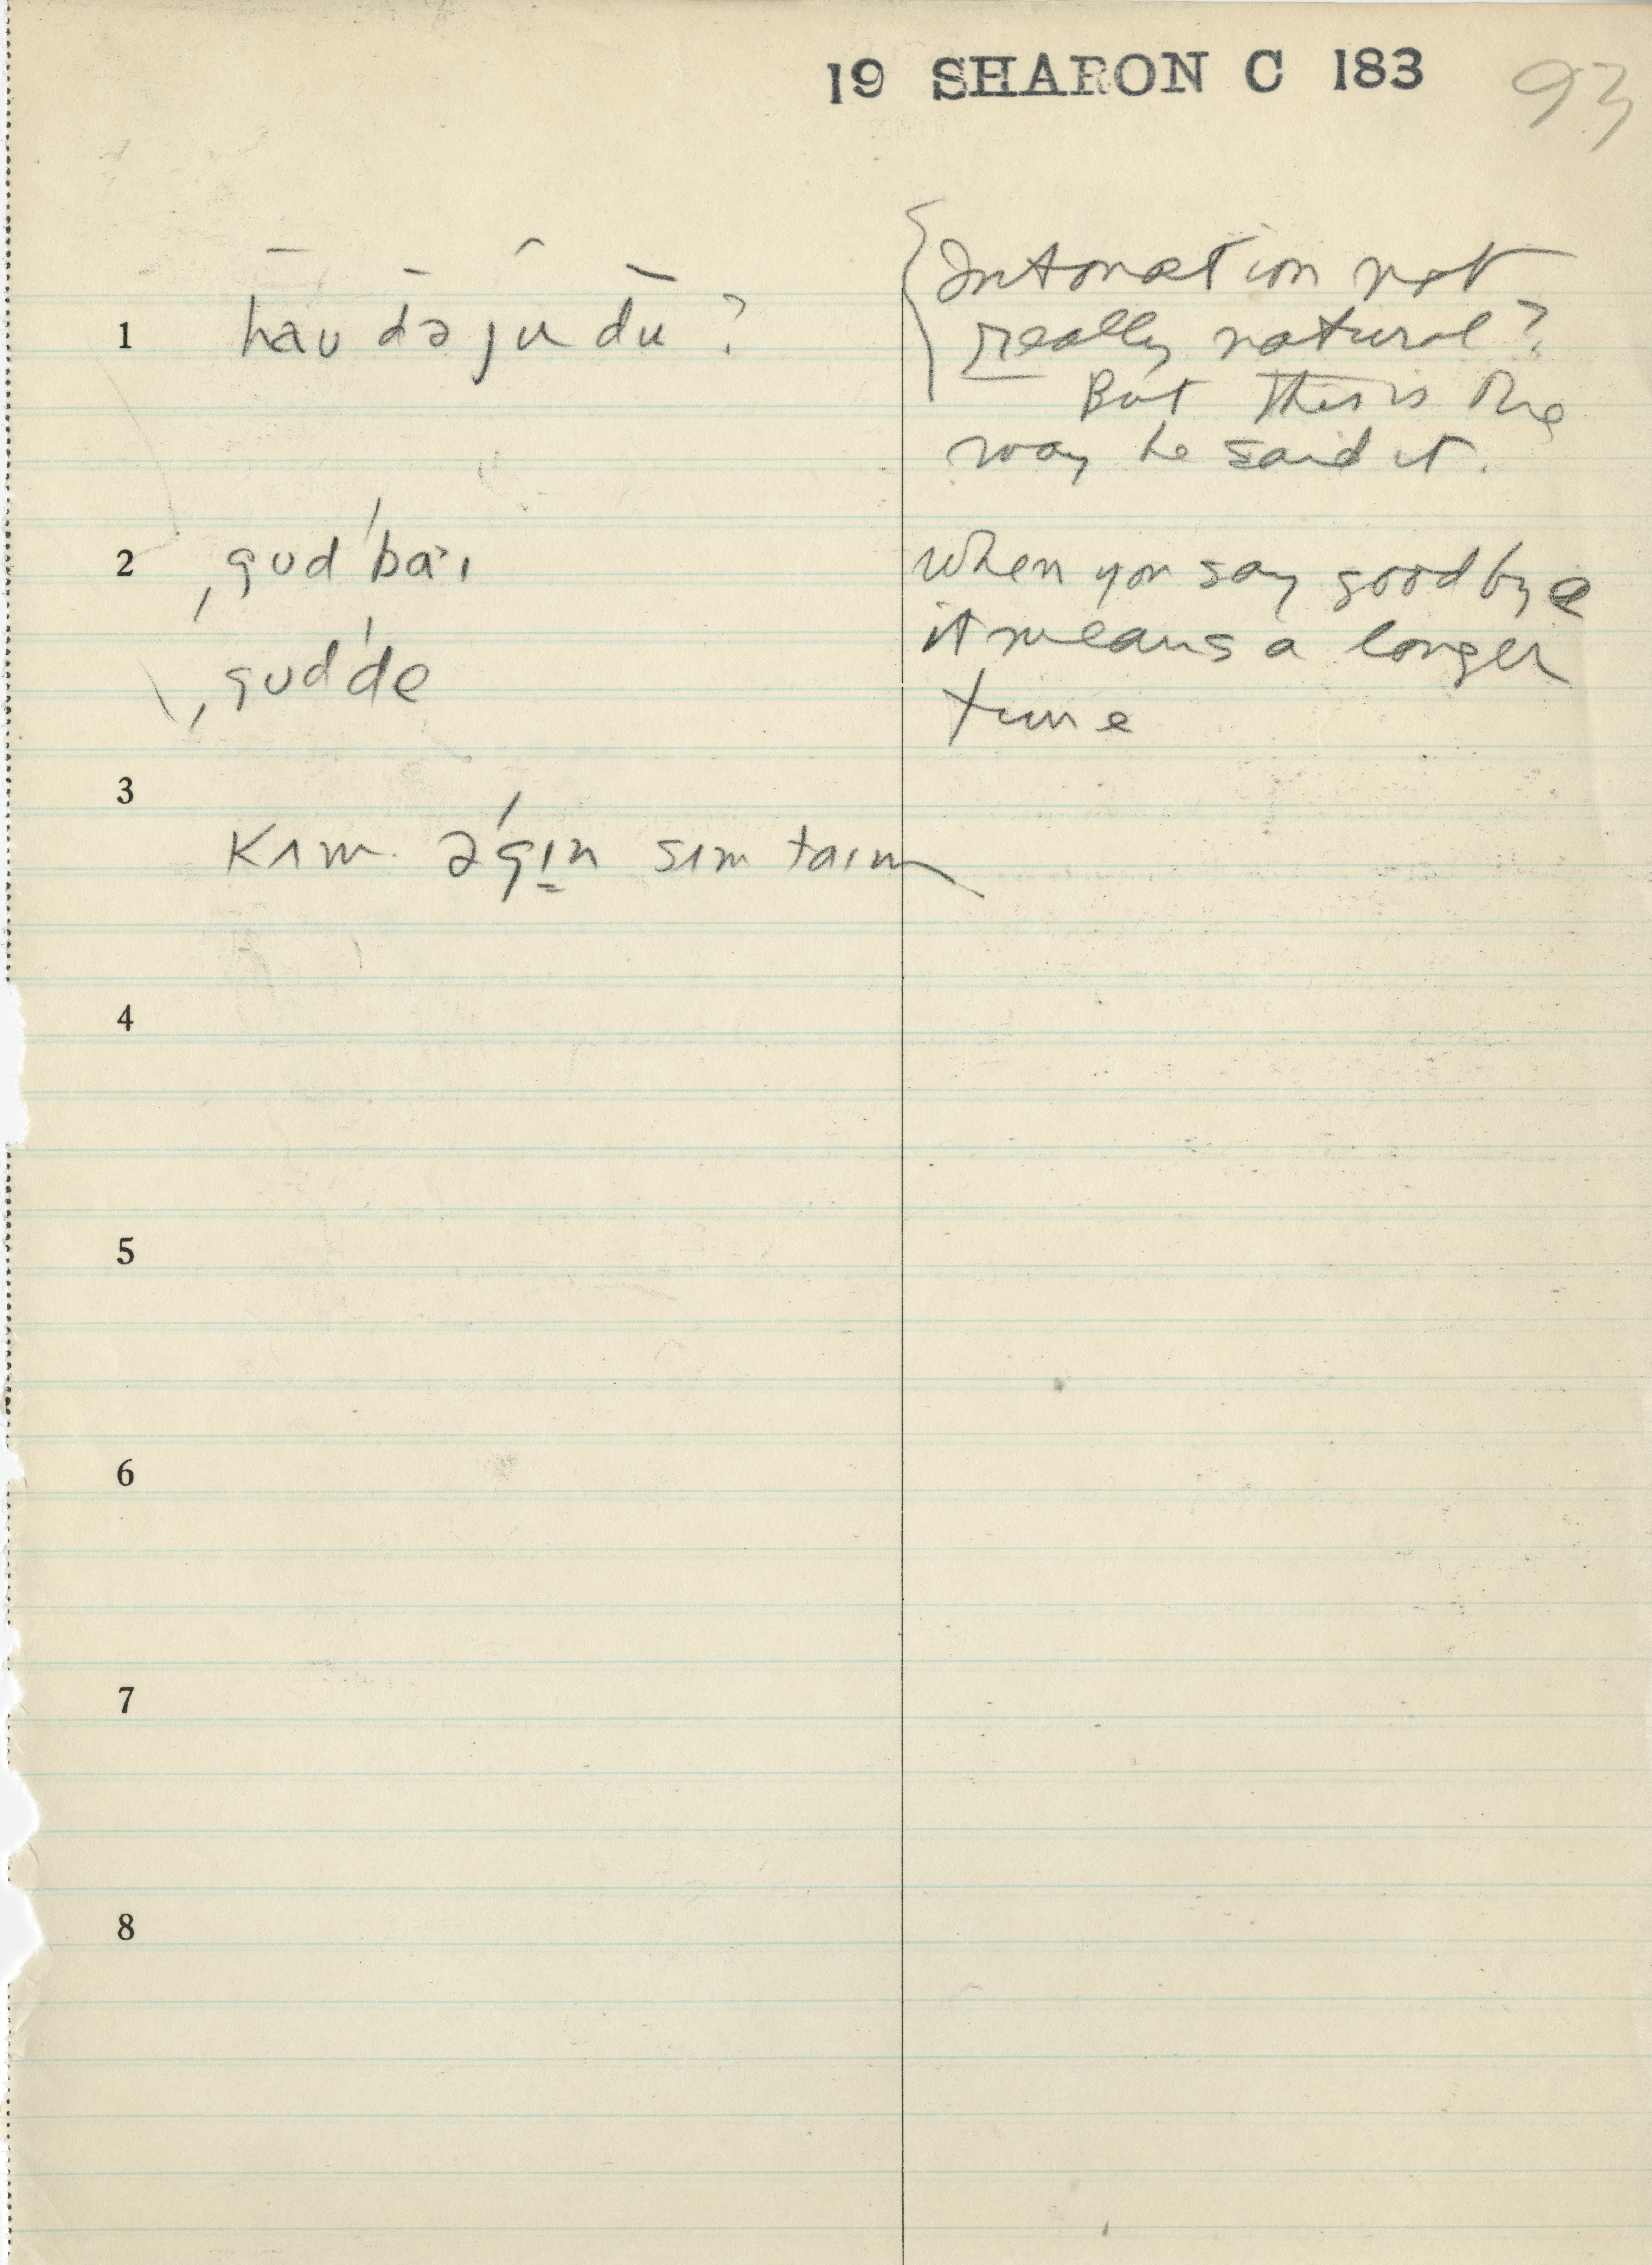 19 SHARON C 183 93
1 hau də ju du ?
Intonation not
really natural?
But this is the
way he said it.
2 ˌgʊdˈbaˑɪ
when you say goodbye
ˌgʊdˈde
it means a longer
time
3
kʌm əˈgɪn sʌm taɪm
4
5
6
7
8